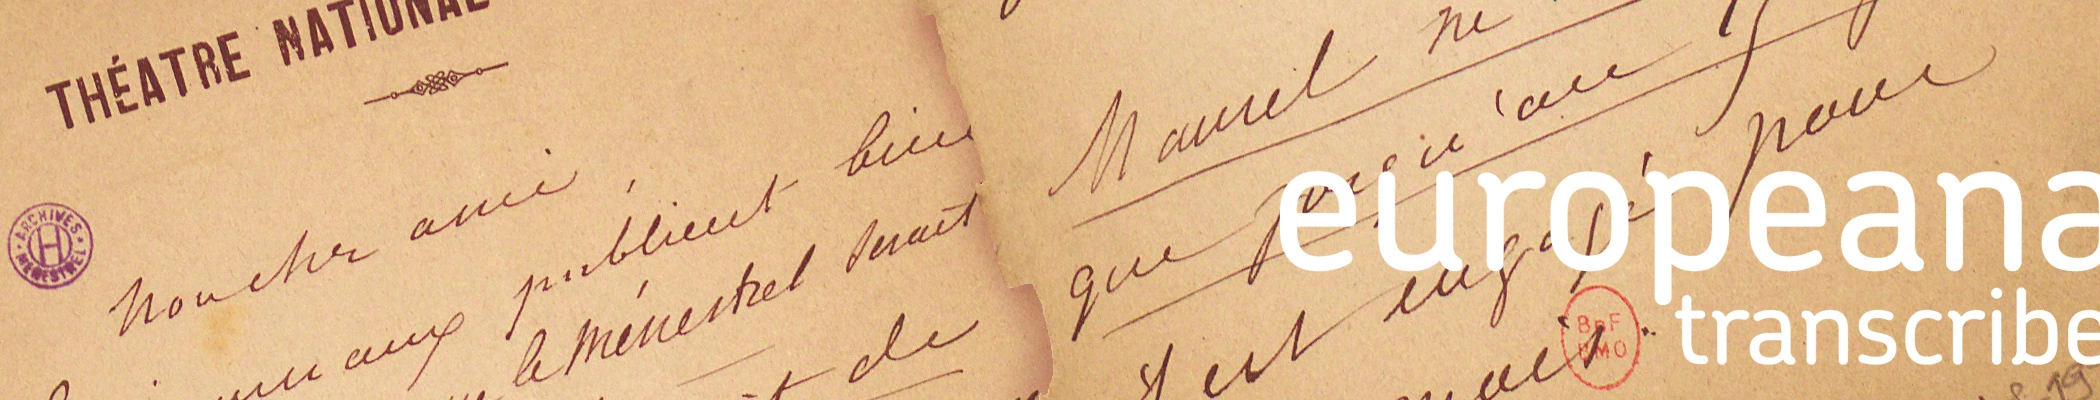 THÉATRE NATIONAL
ARCHIVES
H
MÉNESTREL
Mon cher ami,
publient bien
le Ménestrel serait
de
Maurel ne
que jusqu'au
Il est engagé pour
BnF
BMO
europeana
transcribe